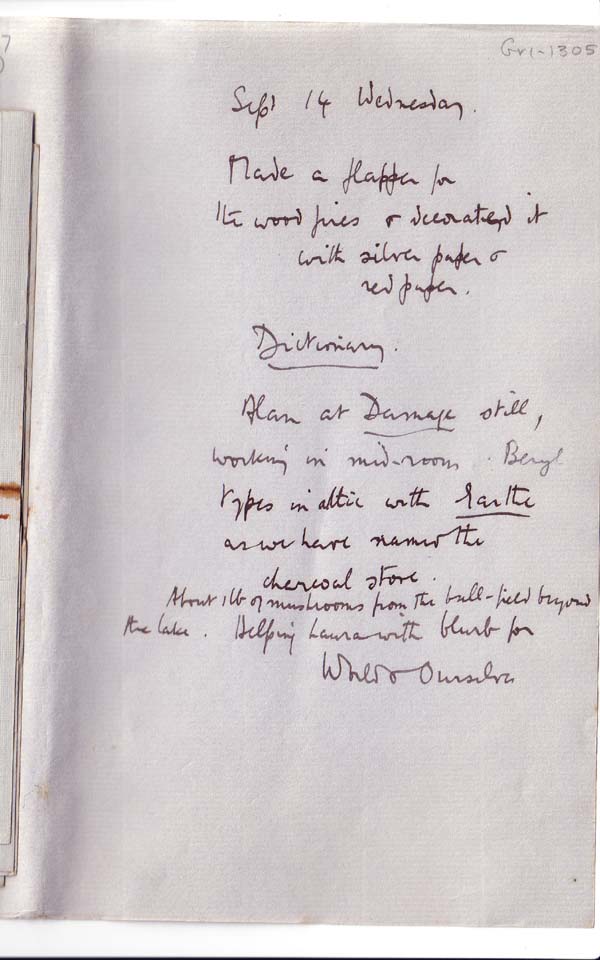 Gr1-1305
Sept 14 Wednesday.
Made a flapper for
the wood fires & decorated it
with silver paper &
red paper.
Dictionary.
Alan at Damage still,
working in mid-room. Beryl
types in attic with
as we have named the
charcoal stove.
About 1 lb of mushrooms from the bull-field beyond
the lake. Helping Laura with blurb for
World & Ourselves